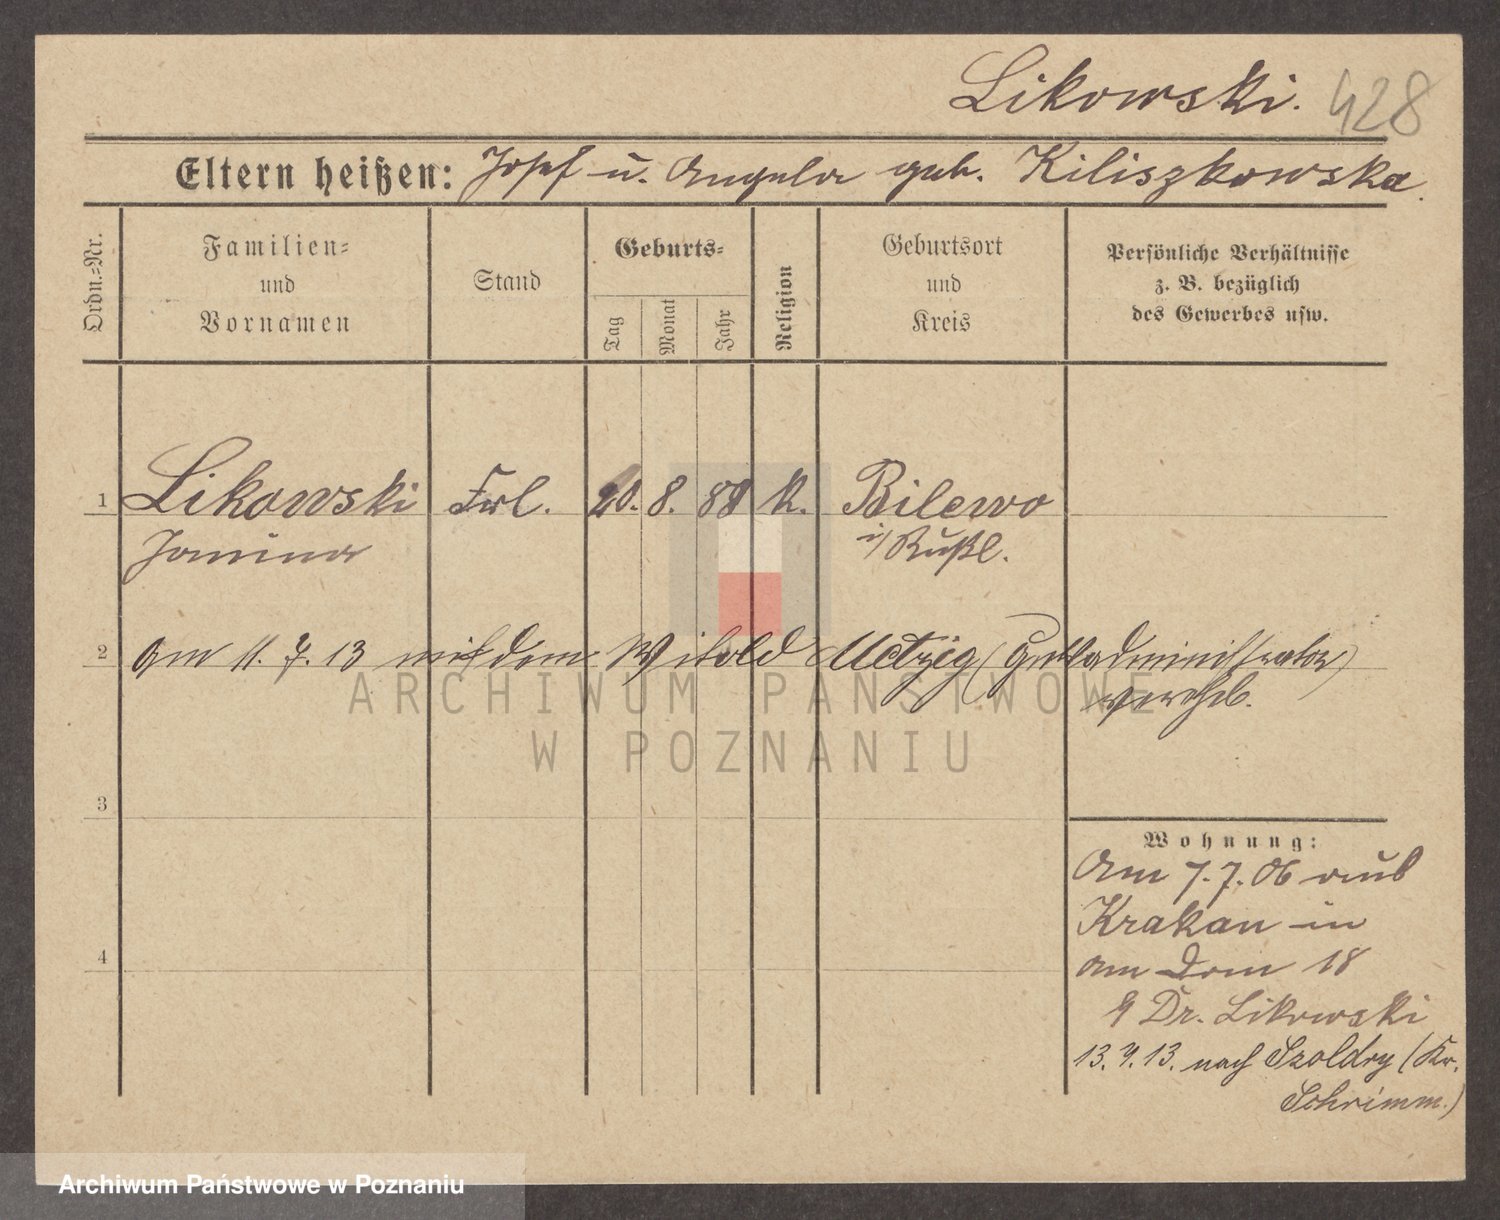 Likowski. 428
Eltern heißen: Josef u. Angela geb. Kiliszkowska.
Ordn.=Nr.
Familien=
und
Vornamen
Stand
Geburts=
Tag
Monat
Jahr
Religion
Geburtsort
und
Kreis
Persönliche Verhältnisse
z. B. bezüglich
des Gewerbes usw.
1 Likowski Frl. 20. 8. 88 K. Bilewo
Janina i/Rußl.
2 am 11. 7. 13 mit dem Witold Metzig (Gutsadministrator)
verehel.
ARCHIWUM PAŃSTWOWE
W POZNANIU
3
Wohnung:
Am 7.7.06 aus
Krakau in
4 am Dom 18
Dr. Likowski
13.9.13. nach Szoldry (Kr.
Schrimm.)
Archiwum Państwowe w Poznaniu